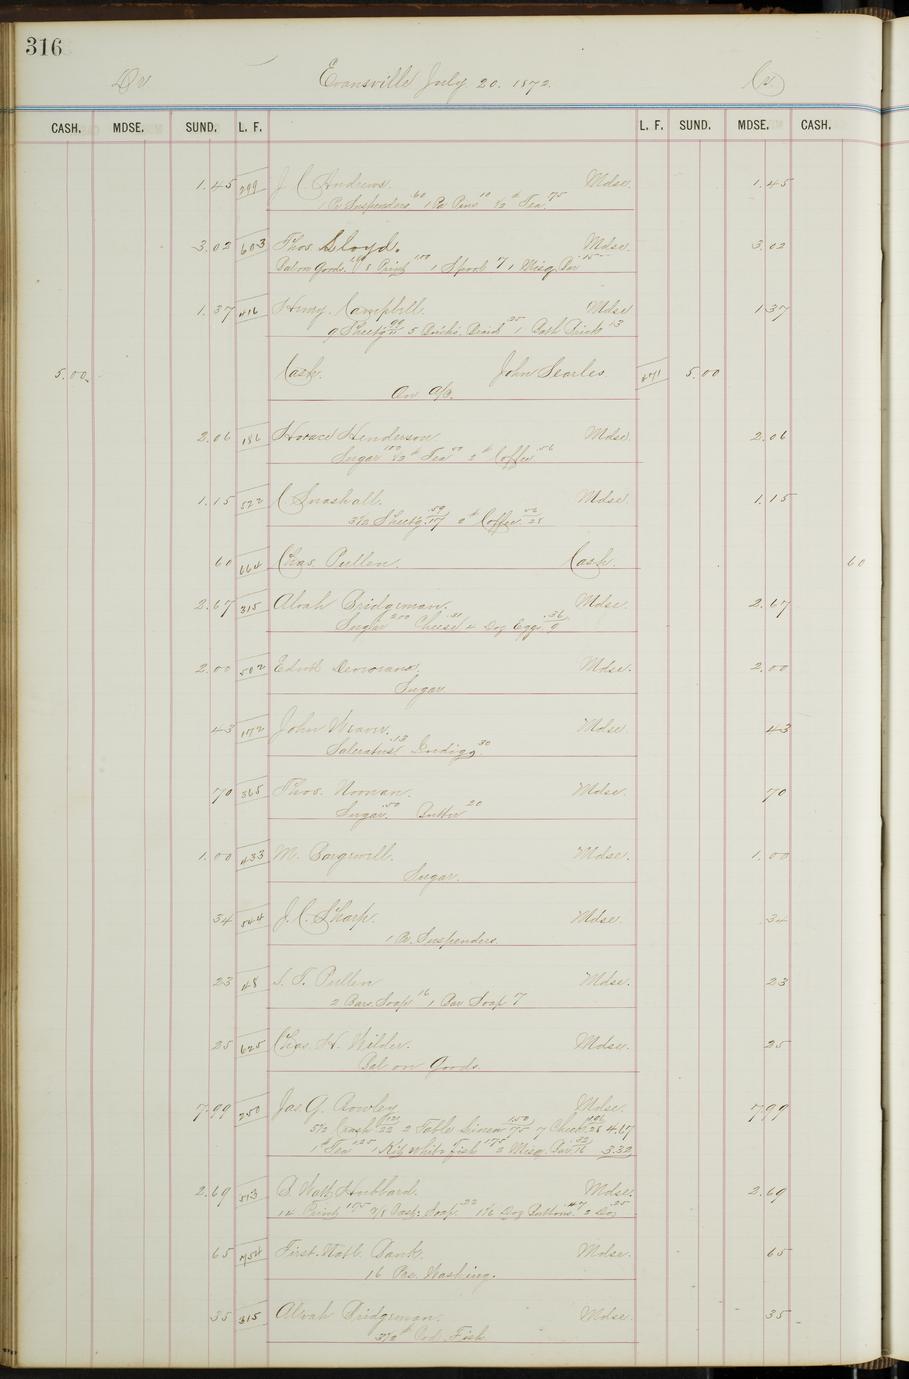 316
Dr Evansville July 20. 1872. Cr.
CASH. MDSE. SUND. L. F. L. F. SUND. MDSE. CASH.
1.45 299 J. C. Andrews. Mdse. 1.45
1 Pr Suspenders 60 1 Pa Pins 10 1/2 # Tea 75
3.02 603 Thos. Lloyd. Mdse. 3.02
Bal on Goods. 8 Print 1.00 1 Spool 7 1 Misq. Bar 15
1.37 416 Henry Campbell. Mdse 1.37
9 Sheetg 11 5 Braid 25 1 13
5.00 Cash. John Searles 471 5.00
On a/c.
2.06 186 Horace Henderson. Mdse. 2.06
Sugar 100 1/2 # Tea 50 2 # Coffee 56
1.15 522 C Snashall. Mdse. 1.15
3 1/2 Sheetg. 59 17 2 # Coffee 56 28
60 664 Chas. Pullen. Cash. 60
2.67 315 Alvah Bridgeman. Mdse. 2.67
Sugar 200 Cheese .31 4 Doz Eggs .36 9
2.00 502 Edwd Mdse. 2.00
Sugar
43 172 John Weaver. Mdse. 43
Saleratus .13 Indigo 30
70 365 Thos. Noonan. Mdse. 70
Sugar .50 Butter 20
1.00 433 M. Mdse. 1.00
Sugar.
34 544 J. C. Sharp. Mdse. 34
1 Pr. Suspenders.
23 48 S. F. Pullen Mdse. 23
2 Bars Soap 16 1 Bar Soap 7
25 625 Chas. H. Wilder. Mdse. 25
Bal on Goods.
7.99 250 Jas. G. Rowley Mdse. 7.99
5 1/2 Crash 22 2 Table Linen 1.50 75 7 Check 28 4.67
1 # Tea 1.25 1 Kit White Fish 1.75 2 Misq. Bar 32 16 3.32
2.69 513 S. Watt Hubbard. Mdse. 2.69
14 Print 1.75 Soap .22 Doz Buttons .47 2 Doz .25
65 754 First Natl. Bank. Mdse. 65
16 Pcs. Washing.
35 315 Alvah Bridgeman. Mdse. 35
3 1/2 # Cod Fish